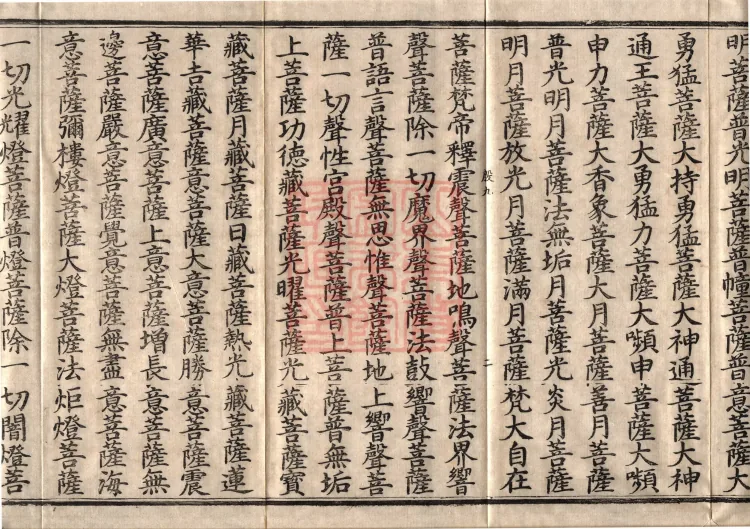 明菩薩普光明菩薩普幢菩薩普意菩薩大
勇猛菩薩大持勇猛菩薩大神通菩薩大神
通王菩薩大勇猛力菩薩大嚬申菩薩大嚬
申力菩薩大香象菩薩大月菩薩善月菩薩
普光明月菩薩法無垢月菩薩光炎月菩薩
明月菩薩放光月菩薩滿月菩薩梵大自在
二
菩薩梵帝釋震聲菩薩地鳴聲菩薩法界響
聲菩薩除一切魔界聲菩薩法鼓響聲菩薩
普語言聲菩薩無思惟聲菩薩地上響聲菩
薩一切聲性宮殿聲菩薩普上菩薩普無垢
上菩薩功徳藏菩薩光曜菩薩光藏菩薩寳
藏菩薩月藏菩薩日藏菩薩熱光藏菩薩蓮
華吉藏菩薩大意菩薩勝意菩薩震
意菩薩廣意菩薩上意菩薩増長意菩薩無
邊菩薩嚴意菩薩覺意菩薩無盡意菩薩海
意菩薩彌樓燈菩薩大燈菩薩法炬燈菩薩
一切光耀燈菩薩普燈菩薩除一切闇燈菩